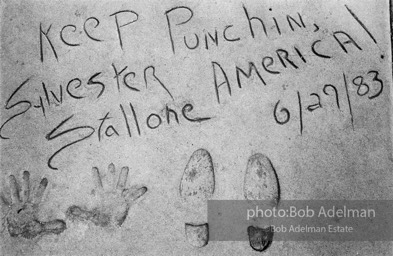 KEEP PUNCHIN,
AMERICA!
Sylvester
Stallone
6/29/83
photo:Bob Adelman
Bob Adelman Estate